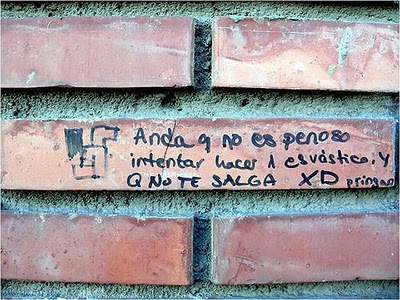 Anda q no es penoso
intentar hacer 1 esvástica, y
Q NO TE SALGA XD pringao